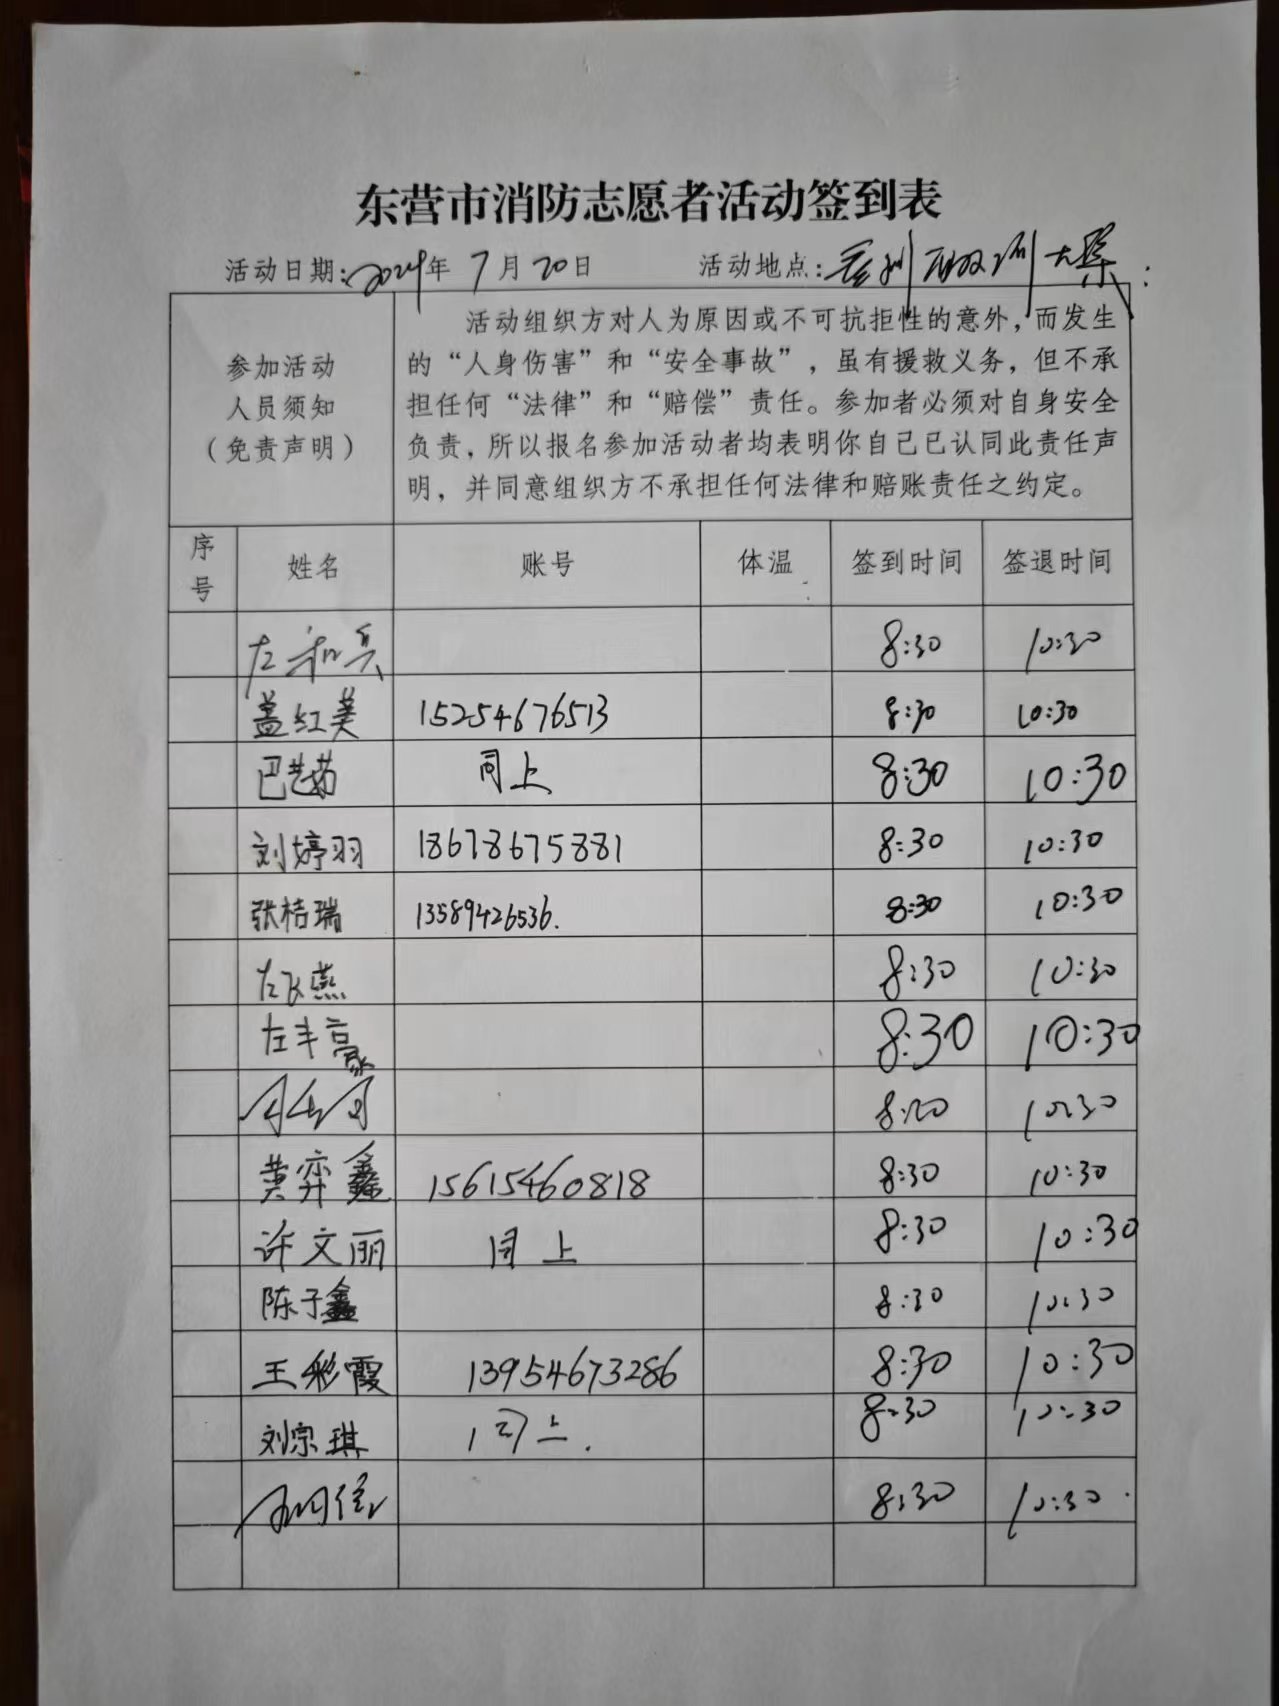 东营市消防志愿者活动签到表
活动日期:2024年 7月20日 活动地点: 大集
参加活动
人员须知
（免责声明）
活动组织方对人为原因或不可抗拒性的意外，而发生
的“人身伤害”和“安全事故”，虽有援救义务，但不承
担任何“法律”和“赔偿”责任。参加者必须对自身安全
负责，所以报名参加活动者均表明你自己已认同此责任声
明，并同意组织方不承担任何法律和赔账责任之约定。
序号 姓名 账号 体温 签到时间 签退时间
左和兵 8:30 10:30
盖红美 15254676513 8:30 10:30
巴艺菡 同上 8:30 10:30
刘婷羽 18678675881 8:30 10:30
张桔瑞 13589426536. 8:30 10:30
左飞燕 8:30 10:30
左丰豪 8:30 10:30
10:30
黄弈鑫 15615460818 8:30 10:30
许文丽 同上 8:30 10:30
陈子鑫 8:30 10:30
王彩霞 13954673286 8:30 10:30
刘宗琪 同上. 8:30 10:30
8:30 10:30